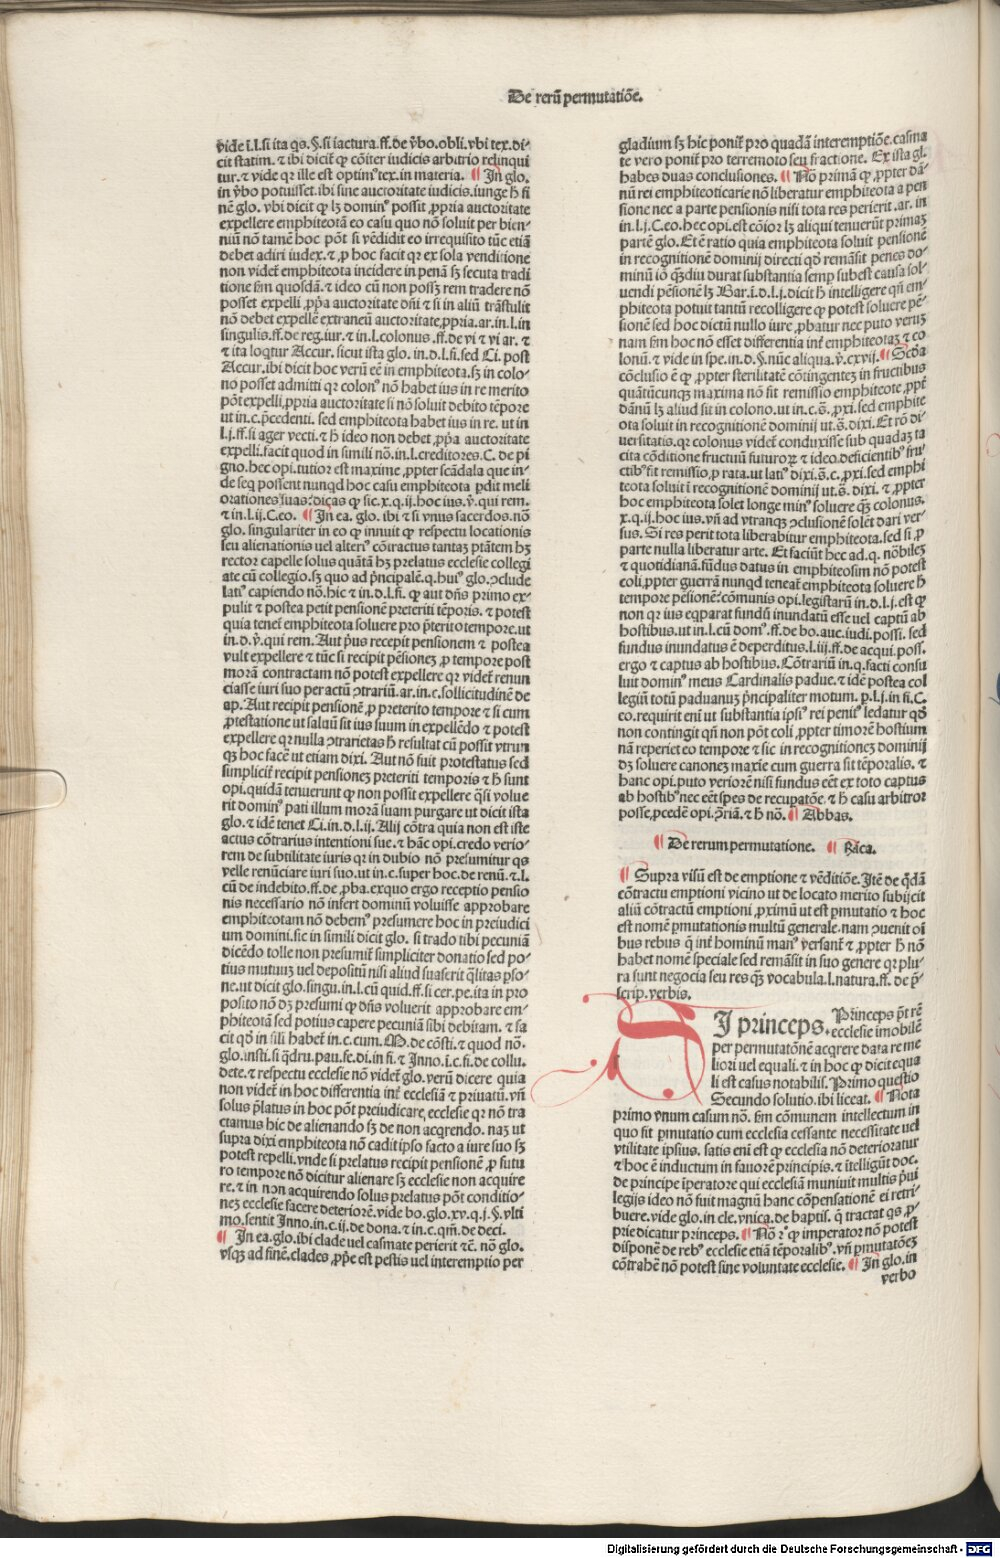 De rerū permutatiōe.
vide ī.l.si ita qs.§.si iactura.ff.de v̄bo.obli.vbi tex.di-
cit statim. ⁊ ibi dicit̄ ꝙ cōiter iudicis arbitrio relinqui
tur.⁊ vide qꝛ ille est optim⁹ tex.in materia. ¶ In glo.
in v̄bo potuisset.ibi sine auctoritate iudicis.iunge h̄ fi
nē glo. vbi dicit ꝙ lꝫ domin⁹ possit ꝓpria auctoritate
expellere emphiteotā eo casu quo nō soluit per bien-
niū nō tamē hoc pōt si vēdidit eo irrequisito tūc etiā
debet adiri iudex.⁊ ꝓ hoc facit qꝛ ex sola venditione
non videt̄ emphiteota incidere in penā sꝫ secuta tradi
tione fm quosdā.⁊ ideo cū non possꝫ rem tradere nō
posset expelli ꝓpͥa auctoritate dn̄i ⁊ si in aliū trāstulit
nō debet expelle extraneū auctoritate ꝓpria.ar.in.l.in
singulis.ff.de reg.iur.⁊ in.l.colonus.ff.de vi ⁊ vi ar. ⁊
⁊ ita loqt̄ur Accur. sicut ista glo.in.d.l.fi.sed Ci. post
Accur.ibi dicit hoc verū eē in emphiteota.sꝫ in colo-
no posset admitti qꝛ colon⁹ nō habet ius in re merito
pōt expelli ꝓpria auctoritate si nō soluit debito tēpore
ut in.c.p̄cedenti. sed emphiteota habet ius in re. ut in
l.j.ff.si ager vecti.⁊ h̄ ideo non debet ꝓpͥa auctoritate
expelli.facit quod in simili nō.in.l.creditores.C. de pi
gno.hec opi.tutior est maxime ꝓpter scādala que in-
de seq̄ possent nunqd hoc casu emphiteota ꝑdit meli
orationes suas:dicas ꝙ sic.x.q.ij.hoc ius.v̄.qui rem.
⁊ in.l.ij.C.eo. ¶ In ea. glo. ibi ⁊ si vnus sacerdos.nō
glo. singulariter in eo ꝙ innuit ꝙ respectu locationis
seu alienationis vel alteri⁹ cōtractus tantaꝫ ptātem hꝫ
rector capelle solus quātā hꝫ prelatus ecclesie collegi
ate cū collegio.sꝫ quo ad p̄ncipalē.q.hui⁹ glo.ↄclude
lati⁹ capiendo nō.hic ⁊ in.d.l.fi. ꝙ aut dn̄s primo ex-
pulit ⁊ postea petit pensionē preteriti tēporis. ⁊ potest
quia tenet̄ emphiteota soluere pro p̄terito tempore.ut
in.d.v̄.qui rem. Aut p̄us recepit pensionem ⁊ postea
vult expellere ⁊ tūc si recipit pēsioneꝫ ꝓ tempore post
morā contractam nō potest expellere qꝛ videt̄ renun
ciasse iuri suo per actū ↄtrariū.ar.in.c.sollicitudinē de
ap. Aut recipit pensionē ꝓ preterito tempore ⁊ si cum
ꝓtestatione ut saluū sit ius suum in expellēdo ⁊ potest
expellere qꝛ nulla ↄtrarietas h̄ resultat cū possit vtrun
qꝫ hoc facē ut etiam dixi. Aut nō fuit protestatus sed
simplicit̄ recipit pensioneꝫ preteriti temporis ⁊ h̄ sunt
opi.quidā tenuerunt ꝙ non possit expellere q̄si volue
rit domin⁹ pati illum morā suam purgare ut dicit ista
glo.⁊ idē tenet Ci.in.d.l.ij. Alij cōtra quia non est iste
actus cōtrarius intentioni sue.⁊ hāc opi.credo verio-
rem de subtilitate iuris qꝛ in dubio nō presumitur qs
velle renūciare iuri suo.ut in.c.super hoc.de renū.⁊.l.
cū de indebito.ff.de ꝓba.exquo ergo receptio pensio
nis necessario nō infert dominū voluisse approbare
emphiteotam nō debem⁹ presumere hoc in preiudici
um domini.sic in simili dicit glo. si trado tibi pecuniā
dicēdo tolle non presumit̄ simpliciter donatio sed po-
tius mutuuꝫ vel depositū nisi aliud suaserit q̄litas ꝑso-
ne.ut dicit glo.singu.in.l.cū quid.ff.si cer.pe.ita in pro
posito nō dꝫ presumi ꝙ dn̄s voluerit approbare em-
phiteotā sed potius capere pecuniā sibi debitam. ⁊ fa
cit qd̄ in sili habet̄ in.c.cum.M.de cōsti.⁊ quod nō.
glo.insti.si q̄dru.pau.fe.di.in fi.⁊ Inno.ī.c.fi.de collu.
dete.⁊ respectu ecclesie nō videt̄ glo.verū dicere quia
non videt̄ in hoc differentia int̄ ecclesiā ⁊ priuatū.vn̄
solus p̄latus in hoc pōt preiudicare ecclesie qꝛ nō tra
ctamus hic de alienando sꝫ de non acqrendo. naꝫ ut
supra dixi emphiteota nō cadit ipso facto a iure suo sꝫ
potest repelli.vnde si prelatus recipit pensionē ꝓ futu
ro tempore nō dicitur alienare sꝫ ecclesie non acquire
re.⁊ in non acquirendo solus prelatus pōt conditio-
neꝫ ecclesie facere deteriorē.vide bo.glo.xv.q.j.§.vlti
mo.sentit Inno.in.c.ij.de dona.⁊ in.c.qm̄.de deci.
¶ In ea.glo.ibi clade vel casmate perierit ⁊c̄. nō glo.
vsqꝫ ad finē.clades ꝓpͥe est pestis vel interemptio per
gladium sꝫ hic ponit̄ pro quadā interemptiōe.casma
te vero ponit̄ pro terremoto seu fractione. Ex ista gl.
habes duas conclusiones. ¶ Nō primā ꝙ ꝓpter dā-
nū rei emphiteoticarie nō liberatur emphiteota a pen
sione nec a parte pensionis nisi tota res perierit.ar.in
in.l.j.C.eo.hec opi.est cōior lꝫ aliqui tenuerūt primaꝫ
partē glo.Et ē ratio quia emphiteota soluit pensionē
in recognitionē dominij directi qd̄ remāsit penes do-
minū iō q̄ꝫdiu durat substantia semꝑ subest causa sol-
uendi pēsionē lꝫ Bar.ī.d.l.j.dicit h̄ intelligere qn̄ em-
phiteota potuit tantū recolligere ꝙ potest soluere pē-
sionē sed hoc dictū nullo iure ꝓbatur nec puto veruꝫ
nam fm hoc nō esset differentia int̄ emphiteotaꝫ ⁊ co
lonū.⁊ vide in spe.in.d.§.nūc aliqua.v̄.cxvij. ¶ Scd̄a
cōclusio ē ꝙ ꝓpter sterilitatē cōtingenteꝫ in fructibus
quātūcunqꝫ maxima nō fit remissio emphiteote ꝓpt̄
dānū lꝫ aliud sit in colono.ut in.c.s̄.ꝓxi.sed emphite
ota soluit in recognitionē dominij ut.s̄.dixi.Et rō di
uersitatis.qꝛ colonus videt̄ conduxisse sub quadaꝫ ta
cita cōditione fructuū futuroꝝ ⁊ ideo deficientib⁹ fru-
ctib⁹ fit remissio ꝓ rata.ut lati⁹ dixi.s̄.c.ꝓxi.sed emphi
teota soluit ī recognitionē dominij ut.s̄. dixi. ⁊ ꝓpter
hoc emphiteota solet longe min⁹ soluere qꝫ colonus.
x.q.ij.hoc ius.vn̄ ad vtranqꝫ ↄclusionē solēt dari ver-
sus. Si res perit tota liberabitur emphiteota.sed si ꝓ
parte nulla liberatur arte. Et faciūt hec ad.q. nōbileꝫ
⁊ quotidianā.fūdus datus in emphiteosim nō potest
coli ꝓpter guerrā nunqd teneat̄ emphiteota soluere h̄
tempore pēsionē:cōmunis opi.legistarū in.d.l.j.est ꝙ
non qꝛ ius eqparat fundū inundatū esse vel captū ab
hostibus.ut in.l.cū dom⁹.ff.de bo.auc.iudi.possi. sed
fundus inundatus ē deperditus.l.iij.ff.de acqui.poss.
ergo ⁊ captus ab hostibus. Cōtrariū in.q.facti consu
luit domin⁹ meus Cardinalis padue.⁊ idē postea col
legiū totū paduanuꝫ p̄ncipaliter motum. ꝑ.l.j.in fi.C.
eo.requirit eni ut substantia ipsi⁹ rei penit⁹ ledatur qd̄
non contingit qn̄ non pōt coli ꝓpter timorē hostium
nā reperiet̄ eo tempore ⁊ sic in recognitioneꝫ dominij
dꝫ soluere canonеꝫ maxie cum guerra sit tēporalis. ⁊
hanc opi.puto veriorē nisi fundus eēt ex toto captus
ab hostib⁹ nec eēt spes de recuꝑatōe.⁊ h̄ casu arbitror
posse ꝓcedē opi.ↄriā.⁊ h̄ nō. ¶ Abbas.
¶ De rerum permutatione. ¶ Rᷓca.
¶ Supra visū est de emptione ⁊ vēditiōe. Itē de q̄dā
cōtractu emptioni vicino ut de locato merito subijcit
aliū cōtractū emptioni ꝓximū ut est ꝑmutatio ⁊ hoc
est nomē ꝑmutationis multū generale.nam ↄuenit oī
bus rebus q̄ int̄ hominū man⁹ versant̄ ⁊ ꝓpter h̄ nō
habet nomē speciale sed remāsit in suo genere qꝛ plu-
ra sunt negocia seu res qꝫ vocabula.l.natura.ff. de p̄-
scrip.verbis.
SI princeps. Princeps pōt rē
ecclesie imobilē
per permutatōnē acqrere data re me
liori vel equali.⁊ in hoc ꝙ dicit equa
li est casus notabilis. Primo questio
Secundo solutio.ibi liceat. ¶ Nota
primo vnum casum nō. fm cōmunem intellectum in
quo fit ꝑmutatio cum ecclesia cessante necessitate vel
vtilitate ipsius. satis eni est ꝙ ecclesia nō deterioratur
⁊ hoc ē inductum in fauorē principis.⁊ ītelligūt doc.
de principe īperatore qui ecclesiā muniuit multis p̄ui
legijs ideo nō fuit magnū hanc cōpensationē ei retri-
buere.vide glo.in cle.vnica.de baptis. q̄ tractat qs ꝓ-
prie dicatur princeps. ¶ Nō ꝛ⁹ ꝙ imperator nō potest
disponē de reb⁹ ecclesie etiā tēporalib⁹.vn̄ ꝑmutatōeꝫ
cōtrahē nō potest sine voluntate ecclesie. ¶ In glo.in
verbo
Digitalisierung gefördert durch die Deutsche Forschungsgemeinschaft - DFG